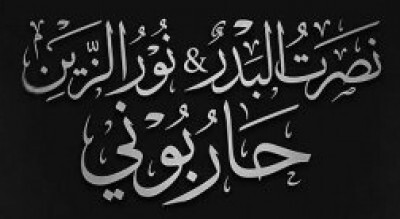 نصرتُ البدرُ & نُورُ الزّين
حَارُبُوني